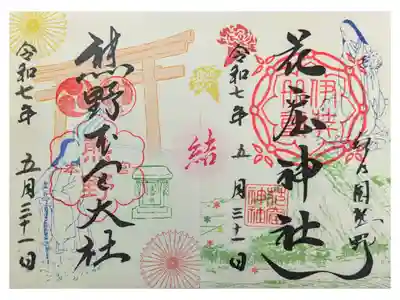 紀乃国熊野
花窟神社
令和七年 五月三十一日
結
熊野本宮大社
令和七年 五月三十一日